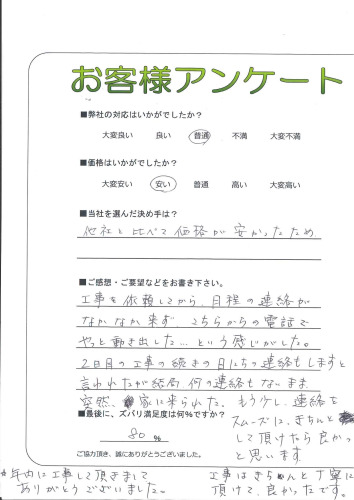 お客様アンケート
■弊社の対応はいかがでしたか？
大変良い　良い　普通　不満　大変不満
■価格はいかがでしたか？
大変安い　安い　普通　高い　大変高い
■当社を選んだ決め手は？
他社と比べて価格が安かったため
■ご感想・ご要望などをお書き下さい。
工事を依頼してから、日程の連絡が
なかなか来ず こちらからの電話で
やっと動き出した…という感じがした。
2日目の工事の続きの日にちの連絡もしますと
言われたが結局、何の連絡もないまま
突然、家に来られた。もう少し、連絡を
スムーズに、きちんと
して頂けたら良かったと
思います
■最後に、ズバリ満足度は何%ですか？
80 %
ご協力頂き、誠にありがとうございました。
*年内に工事して頂きまして
ありがとうございました。
工事はきちんと丁寧に
頂けて、良かったです